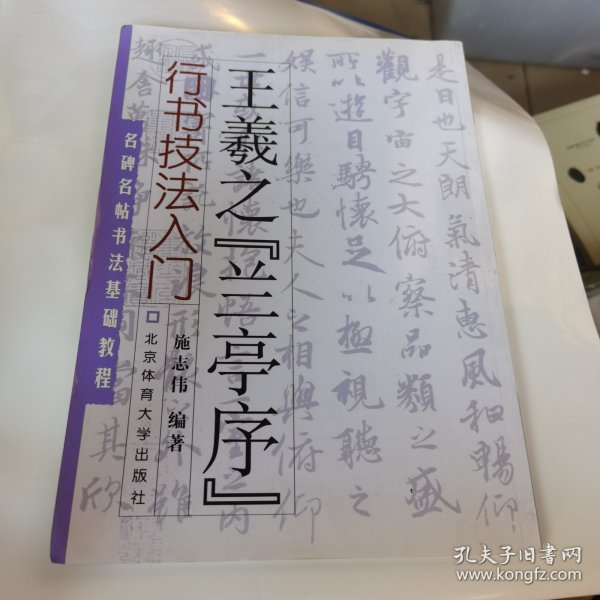 是日也天朗氣清惠風和暢仰
觀宇宙之大俯察品類之盛
所以遊目騁懷足以極視聽之
娛信可樂也夫人之相與俯仰
王羲之『兰亭序』
行书技法入门
施志伟 编著
北京体育大学出版社
名碑名帖书法基础教程
孔夫子旧书网
www.kongfz.com